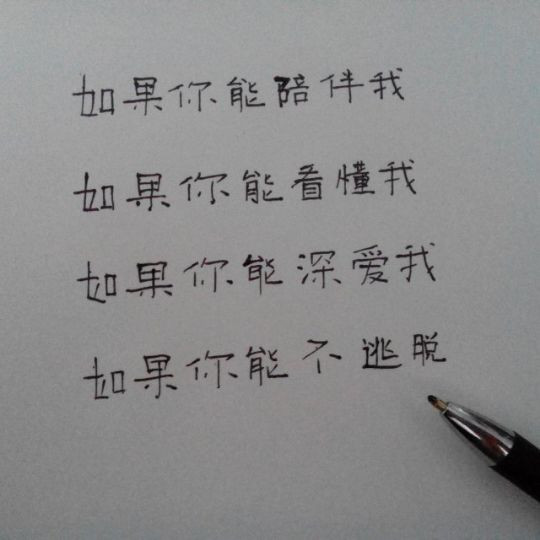 如果你能陪伴我
如果你能看懂我
如果你能深爱我
如果你能不逃脱